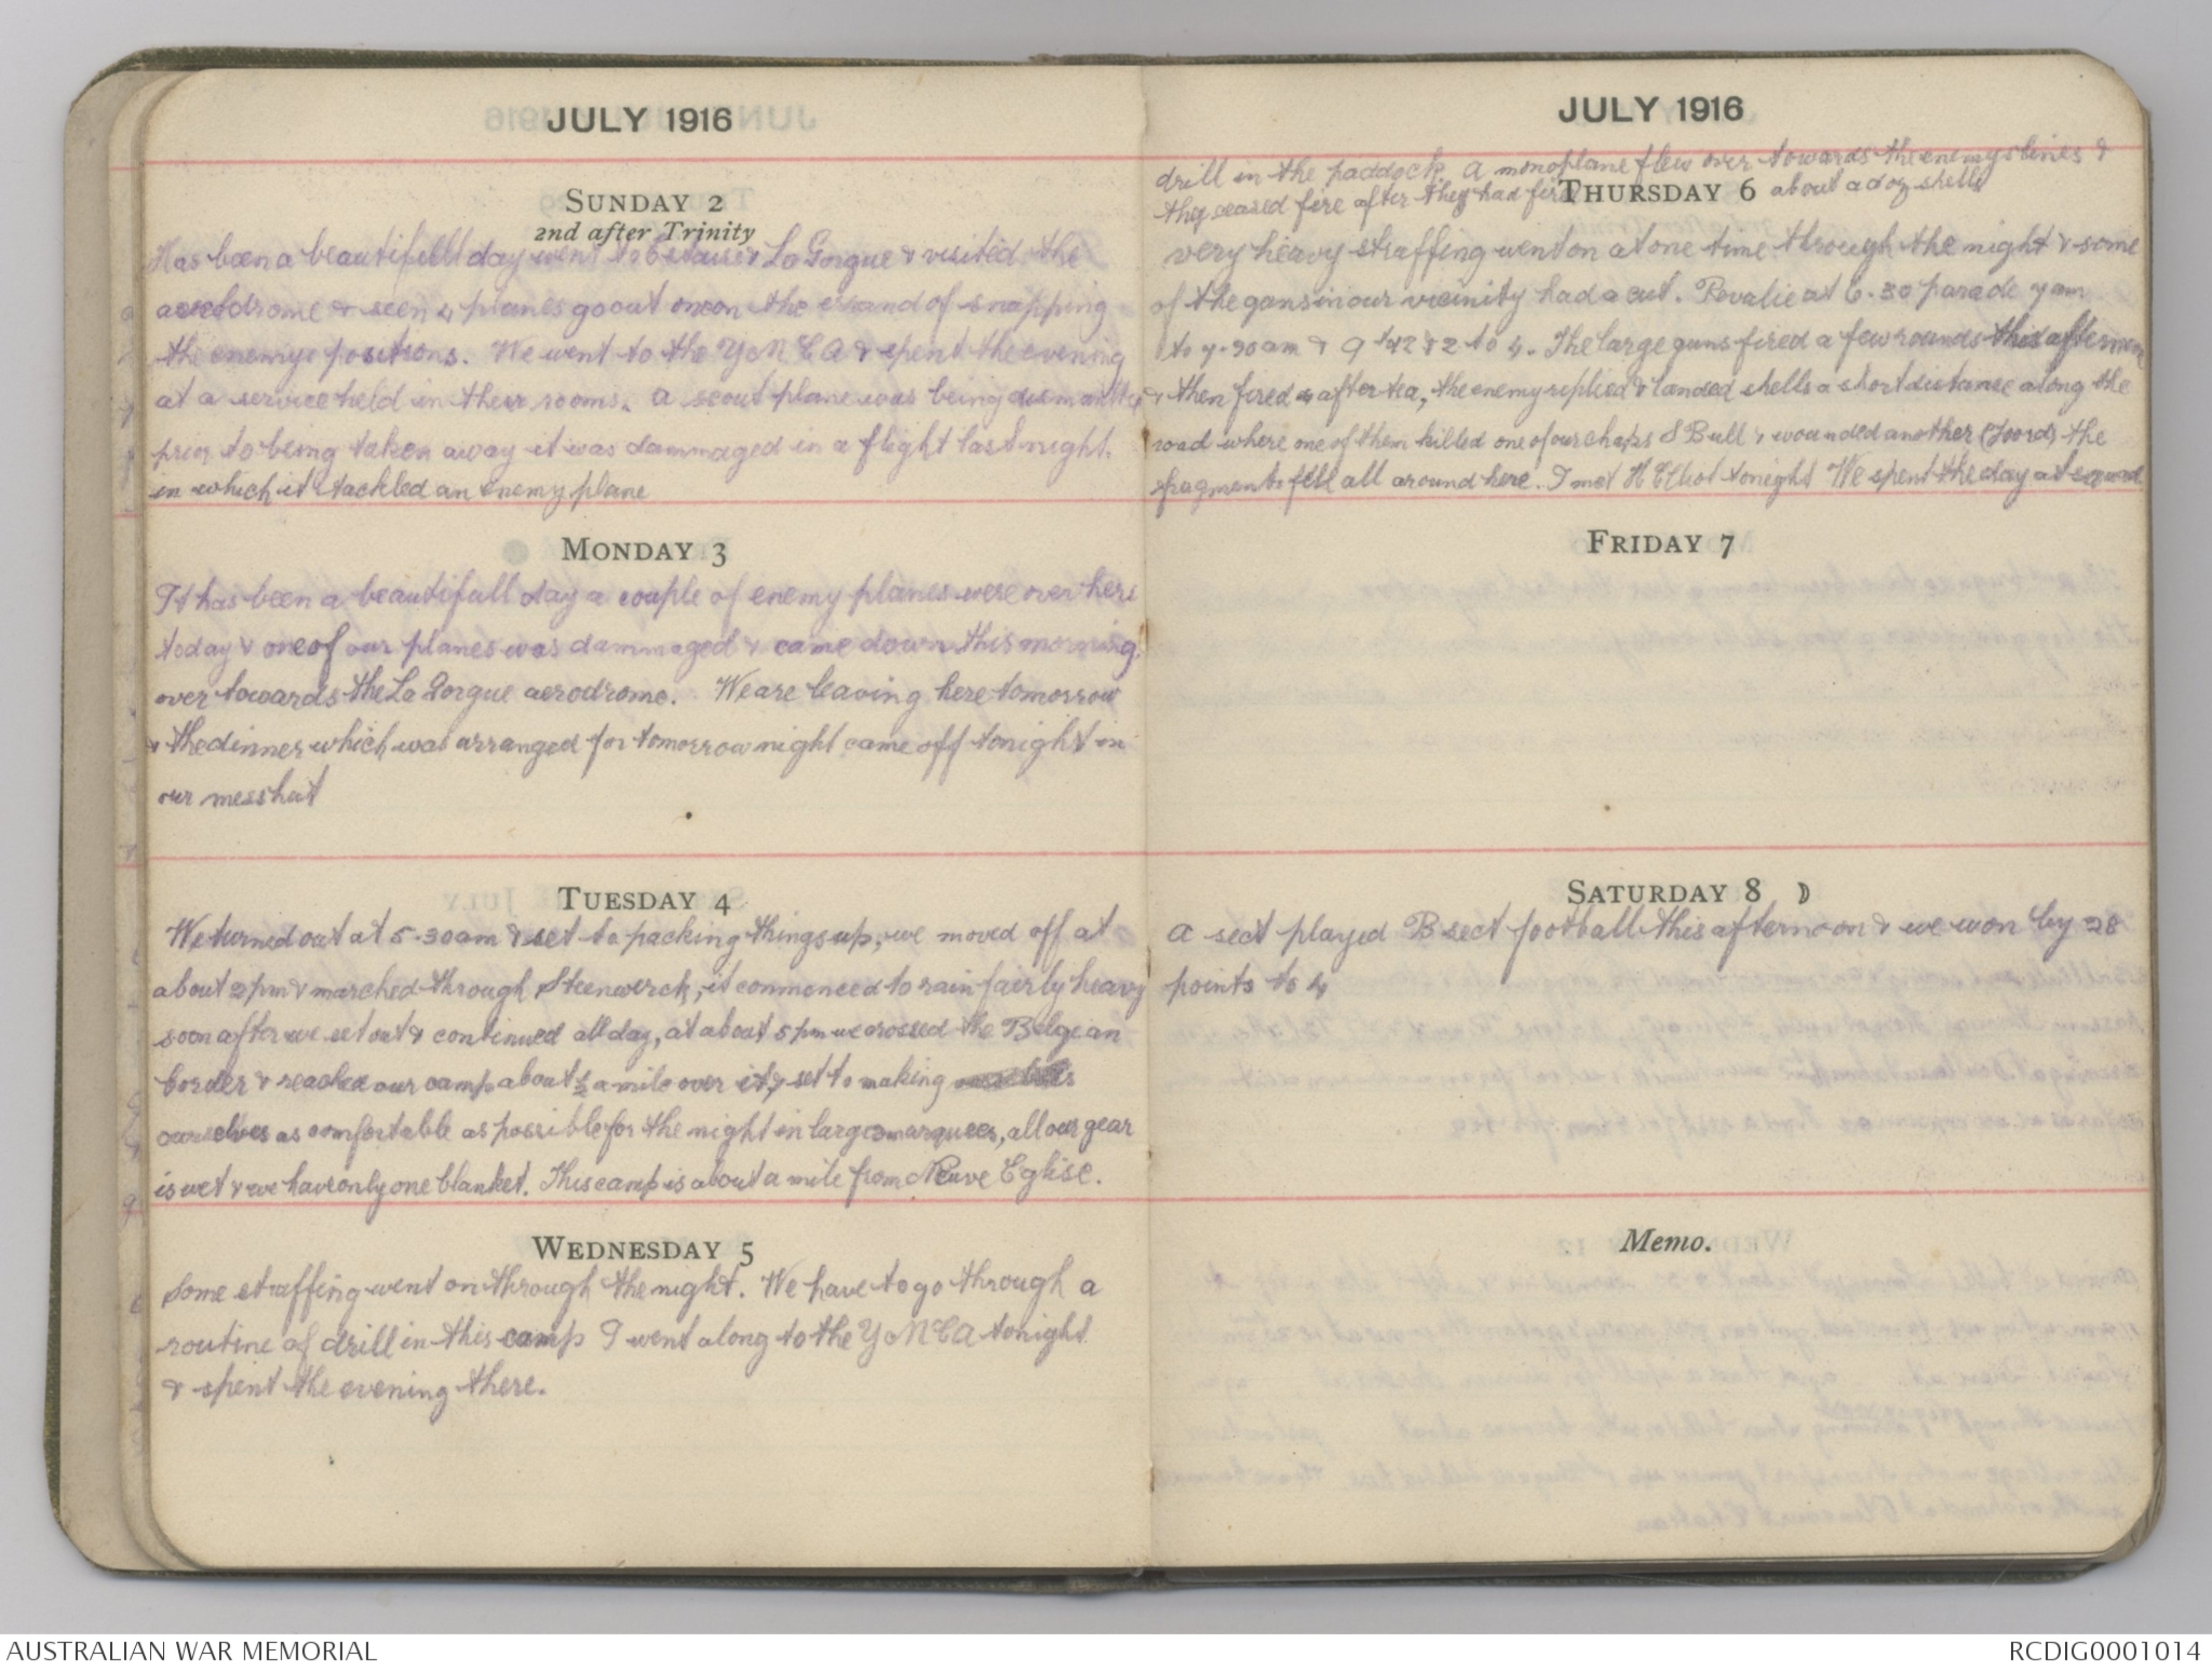 JULY 1916
SUNDAY 2
2nd after Trinity
Has been a beautifull day went to Estaires & La Gorgue & visited the
aerodrome & seen 4 planes go out on the errand of snapping
the enemys positions. We went to the YMCA & spent the evening
at a service held in their rooms. A scout plane was being dismantled
prior to being taken away it was dammaged in a flight last night
in which it tackled an enemy plane
MONDAY 3
It has been a beautifull day a couple of enemy planes were over here
today & one of our planes was dammaged & came down this morning
over towards the La Gorgue aerodrome. We are leaving here tomorrow
& the dinner which was arranged for tomorrow night came off tonight in
our mess hut
TUESDAY 4
We turned out at 5.30am & set to packing things up, we moved off at
about 2pm & marched through Steenwerck, it commenced to rain fairly heavy
soon after we set out & continued all day, at about 5pm we crossed the Belgian
border & reached our camp about ½ a mile over it & set to making
ourselves as comfortable as possible for the night in large marquees, all our gear
is wet & we have only one blanket. This camp is about a mile from Neuve Eglise.
WEDNESDAY 5
Some straffing went on through the night. We have to go through a
routine of drill in this camp I went along to the YMCA tonight
& spent the evening there.
JULY 1916
drill in the paddock. A monoplane flew over towards the enemys lines &
they ceased fire after they had fired about a doz shells
THURSDAY 6
very heavy straffing went on at one time through the night & some
of the guns in our vicinity had a cut. Revalie at 6.30 parade 7am
to 7.30am & 9 to 12 & 2 to 4. The large guns fired a few rounds this afternoon
& then fired 4 after tea, the enemy replied & landed shells a short distance along the
road where one of them killed one of our chaps S Bull & wounded another (Foord) the
fragments fell all around here. I met H Elliot tonight We spent the day at squad
FRIDAY 7
SATURDAY 8
A sect played B sect football this afternoon & we won by 28
points to 4
Memo.
AUSTRALIAN WAR MEMORIAL
RCDIG0001014